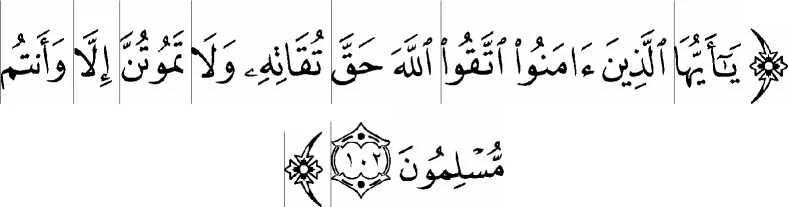 ﴿ يَـٰٓأَيُّهَا ٱلَّذِينَ ءَامَنُوا۟ ٱتَّقُوا۟ ٱللَّهَ حَقَّ تُقَاتِهِۦ وَلَا تَمُوتُنَّ إِلَّا وَأَنتُم
مُّسْلِمُونَ ١٠٢ ﴾